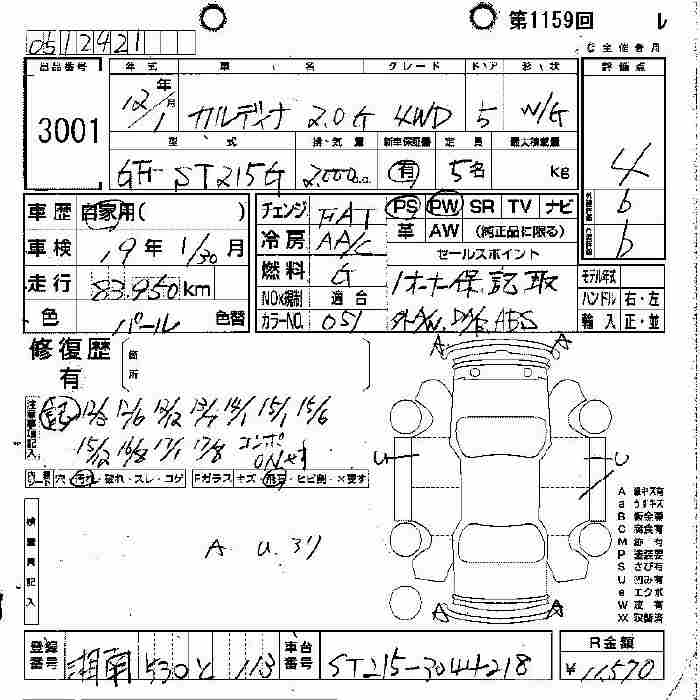 第1159回 レ
0512421
出品番号 年式 車名 グレード ドア 形状 評価点
3001
12年/1月 カルディナ 2.0G 4WD 5 W/G
型式 排・気量 新車保証書 定員 最大積載量
GF- ST215G 2,000cc 有 5名 Kg
4
b
b
車歴 自家用( )
チェンジ FAT
PS PW SR TV ナビ
車検 19年 1/30月
冷房 AA/C
革 AW (純正品に限る)
セールスポイント
走行 83,950km
燃料 G
1オーナー保.記取
NOx規制 適合
色 パール 色替
カラーNO. 051
社外AW. Dエアバ ABS
モデル年式
ハンドル 右・左
輸入 正・並
修復歴 有
箇所
注意事項記入
12/3 12/6 13/12 13/7 14/1 15/1 15/6
15/12 16/8 17/1 17/8 コンポ
ONセす
内装シート 穴・汚れ・破れ・スレ・コゲ Fガラス キズ・飛石・ヒビ割・×要す
検査員記入
A U 有り
A A
U U
A A
A 線キズ有
a うすキズ
B 板金要
C 腐食有
M 跡有
P 塗装要
S さび有
U 凹み有
e エクボ
W 波有
XX 取替済
登録番号 湘南 530 と 113
車台番号 ST215-3044218
R金額
¥11,570